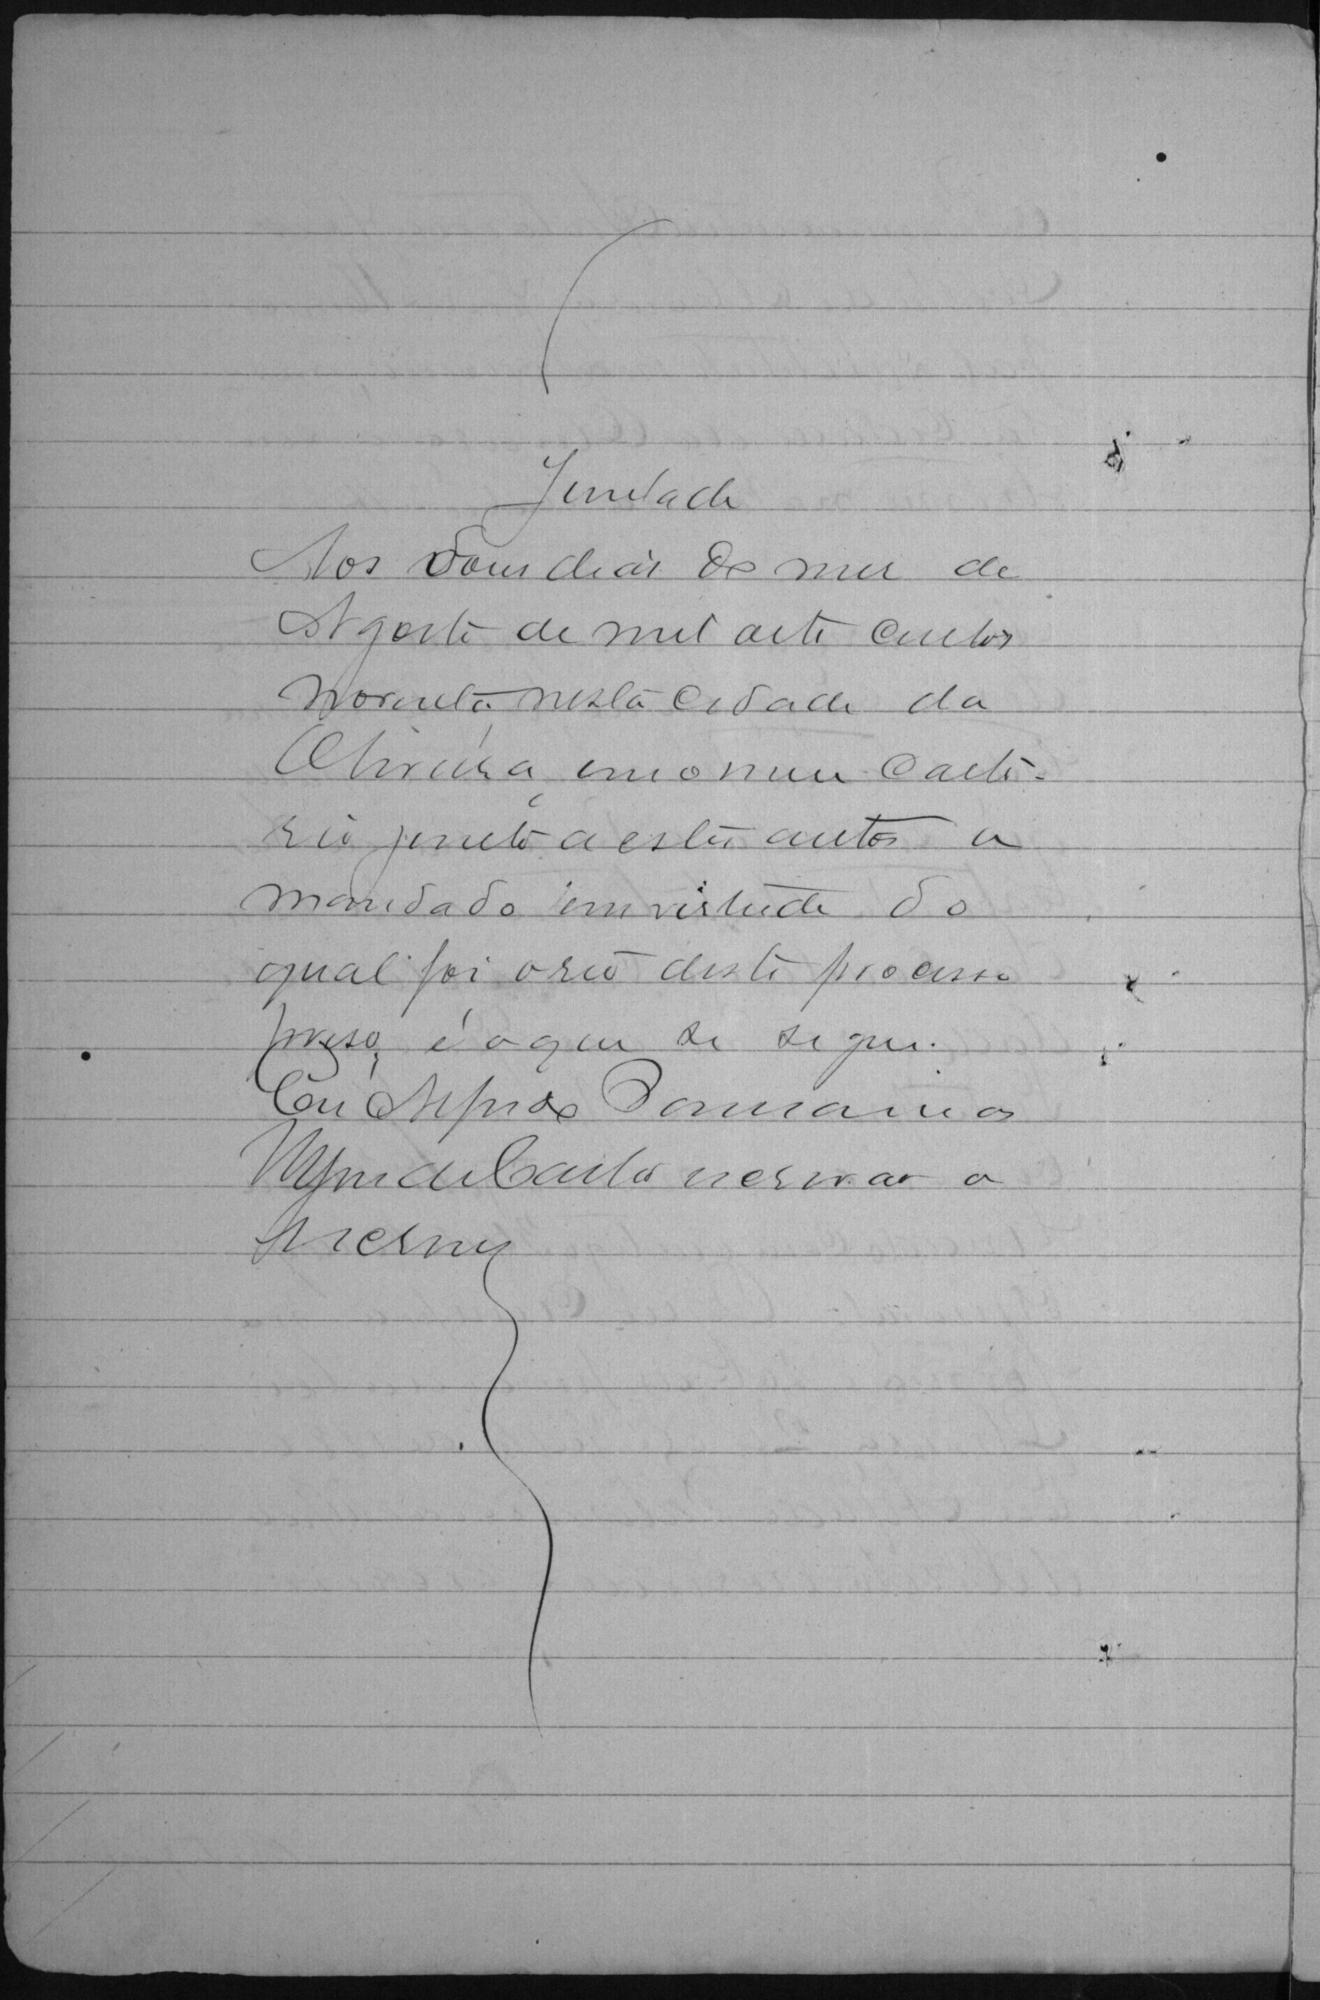 Juntada
Aos dous dias do mez de
Agosto de mil oito centos
noventa, nesta cidade da
Oliveira, em o meu Carto-
rio junto a estes autos o
mandado em virtude do
qual foi o reo deste processo
preso, é o que se segue.
Eu
de Castro escrivão o
escrevy